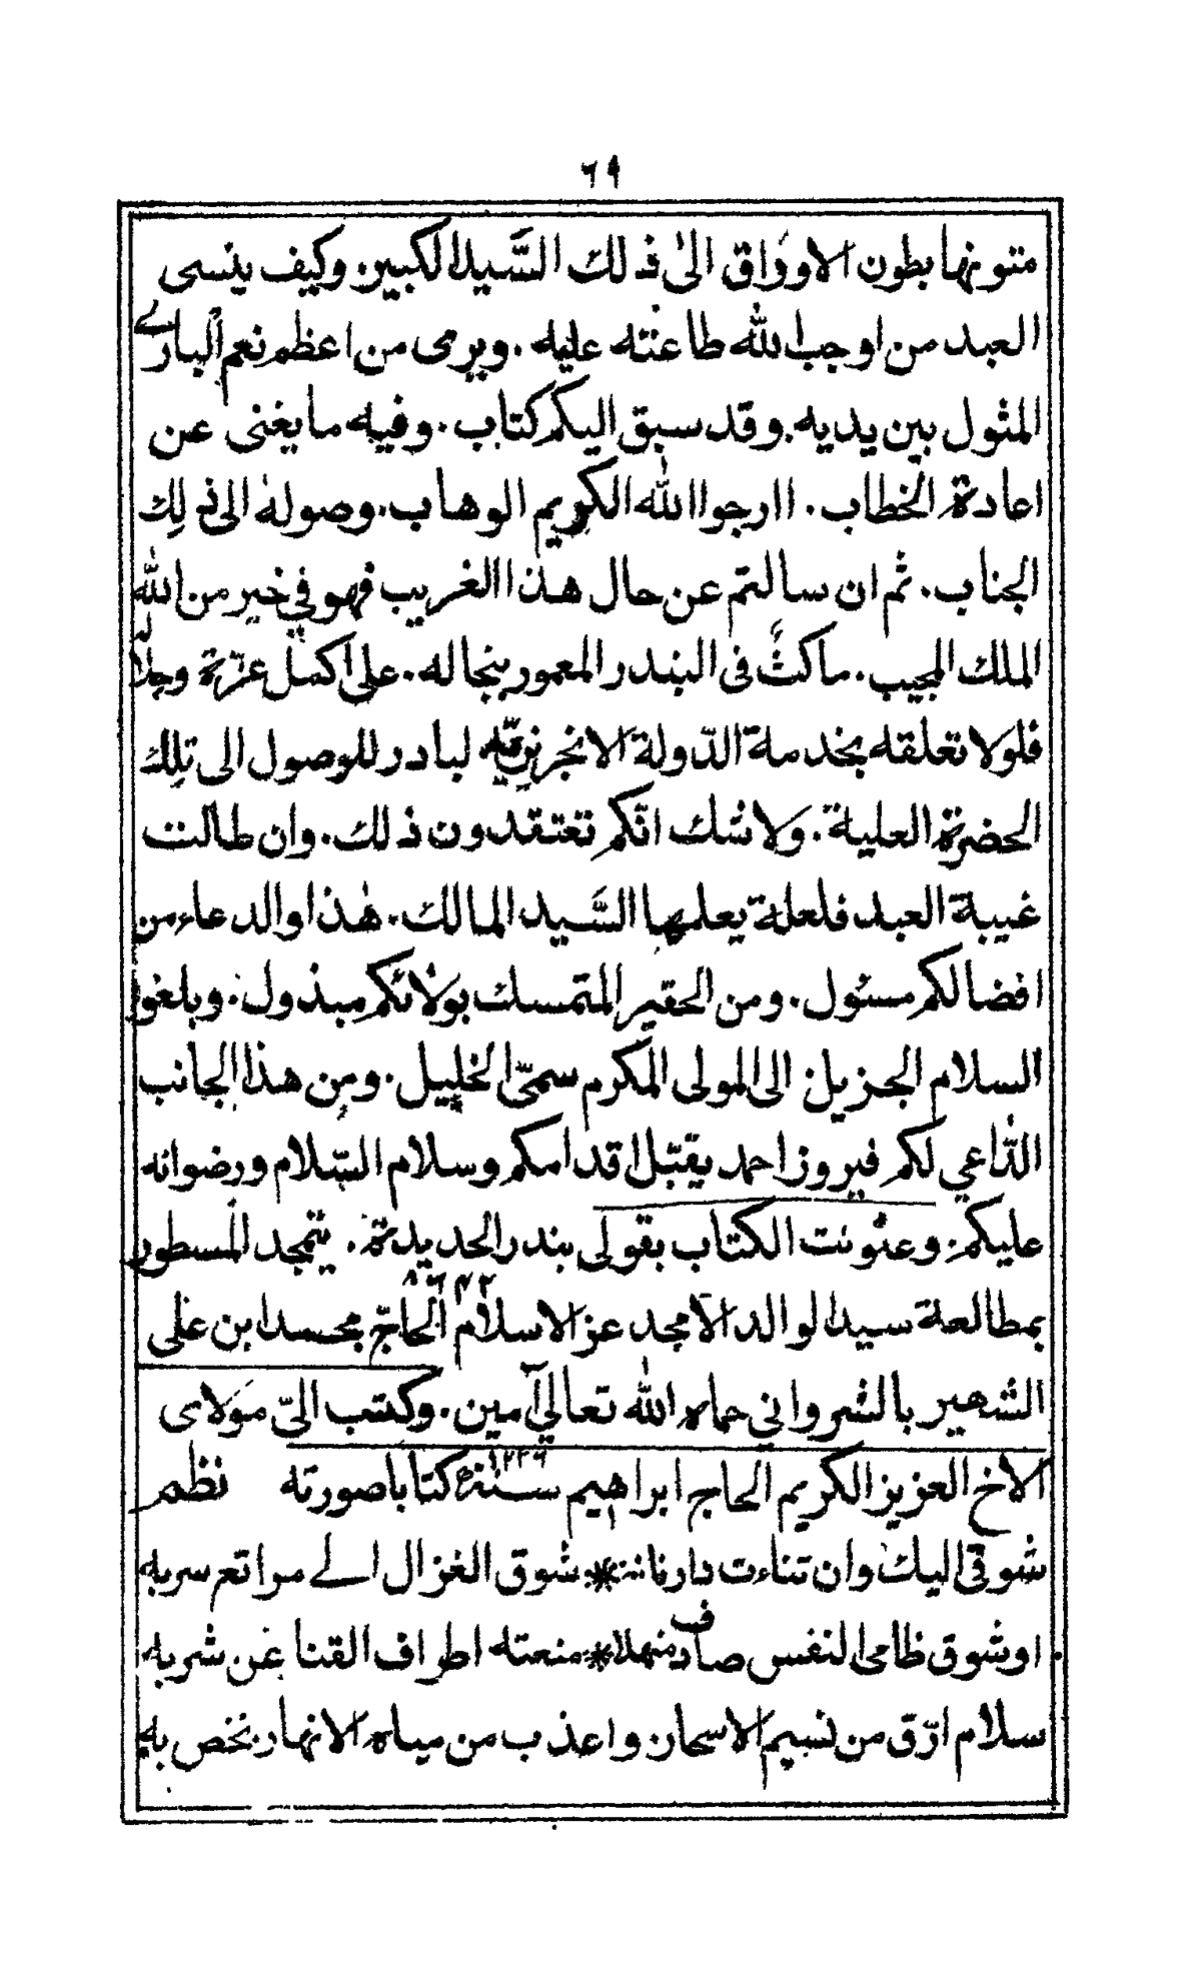 ٦٩
متونها بطون الاوراق الىٰ ذلك السَّيد الكبير. وكيف ينسى
العبد من اوجب الله طاعته عليه. ويرمى من اعظم نعم الباري
المثول بين يديه. وقد سبق اليكم كتاب. وفيه ما يغنى عن
اعادة الخطاب. ارجوا الله الكريم الوهاب. وصوله الى ذلك
الجناب. ثم ان سالتم عن حال هذا الغريب فهو في خير من الله
الملك المجيب. ماكثٌ فى البندر المعمور بنجاله. على اكمل عزّة وجلا
فلولا تعلقه بخدمة الدّولة الانجريزيّه لبادر للوصول الى تلك
الحضرة العلية. ولا شك انّكم تعتقدون ذلك. وان طالت
غيبة العبد فلعلة يعلمها السَّيد المالك. هٰذا والدعاء من
افضالكم مسئول. ومن الحقير المتمسك بولائكم مبذول. وبلغوا
السلام الجزيل الى المولى المكرم سمىّ الخليل. ومن هذا الجانب
الدّاعي لكم فيروز احمد يقبّل اقدامكم وسلام السّلام ورضوانه
عليكم. وعنونت الكتاب بقولى بندر الحديدة. يتمجد المسطور
بمطالعة سيد الوالد الامجد عز الاسلام الحاجّ محمد ابن على
الشهير بالشرواني حماه الله تعالى آمين. وكتب الىّ مولاى
الاخ العزيز الكريم الحاج ابراهيم سنة ١٢٢٦ كتابا صورته نظم
شوقى اليك وان تناءت دارنا * شوق الغزال الے مراتع سربه
او شوق ظامى النفس صادف منهلا * منعته اطراف القنا عن شربه
سلام ارّق من نسيم الاسحار. واعذب من مياه الانهار. نخص به